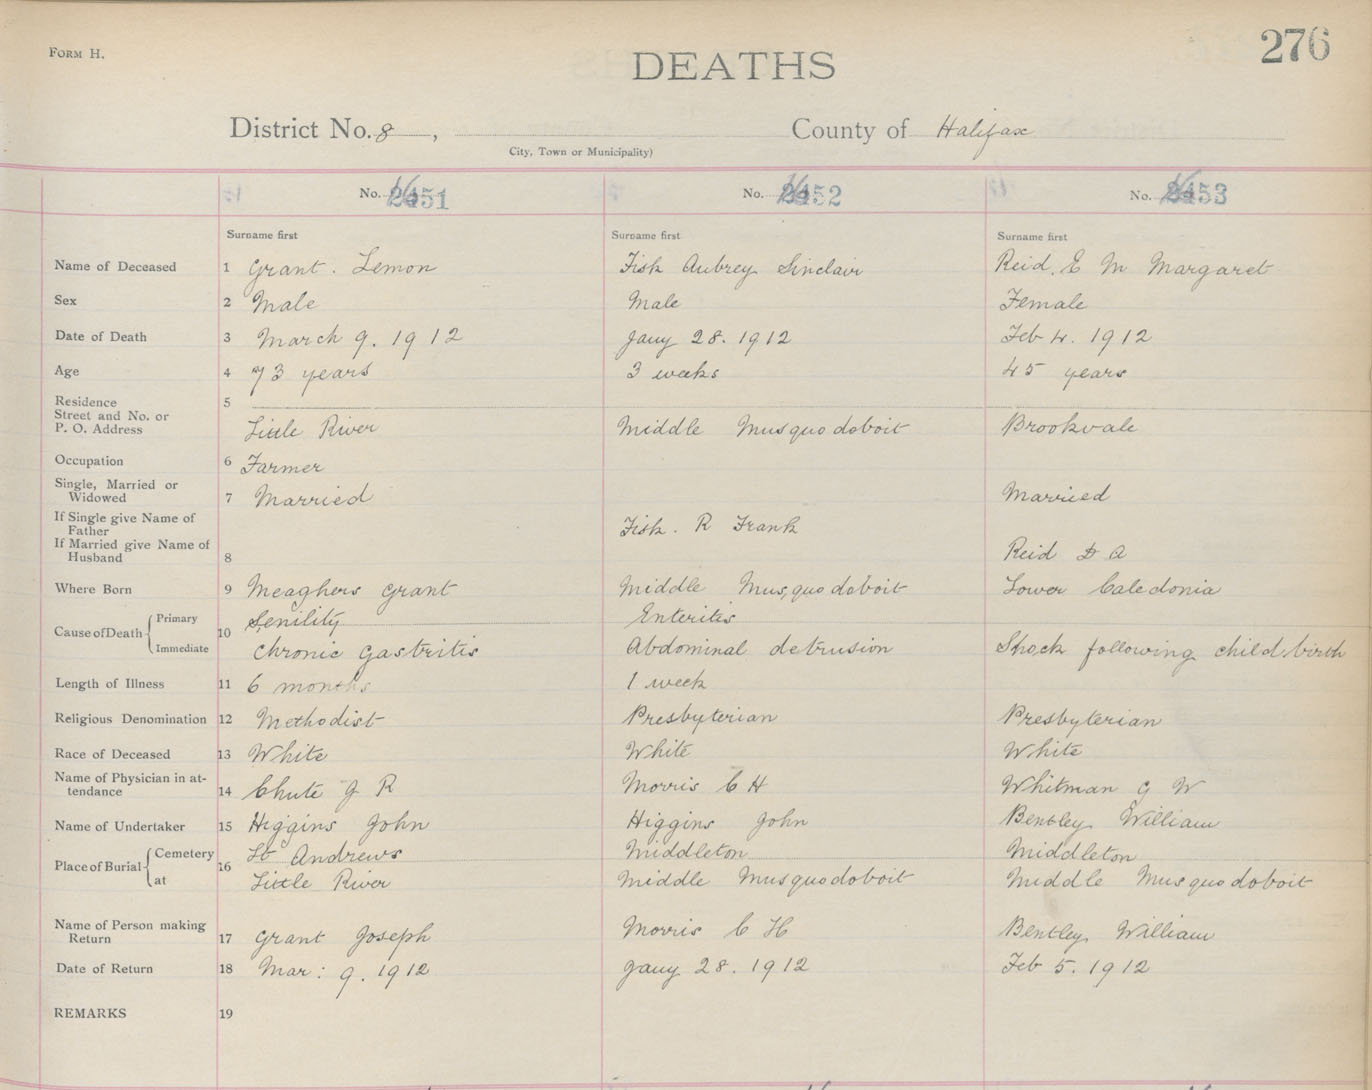 FORM H.
276
DEATHS
District No. 8, County of Halifax
City, Town or Municipality)
No. 2451 No. 2452 No. 2453
Surname first Surname first Surname first
Name of Deceased 1 Grant. Lemon Fisk Aubrey Sinclair Reid. E M Margaret
Sex 2 Male Male Female
Date of Death 3 March 9. 1912 Jany 28. 1912 Feb 4. 1912
Age 4 73 years 3 weeks 45 years
Residence 5
Street and No. or
P. O. Address Little River Middle Musquodoboit Brookvale
Occupation 6 Farmer
Single, Married or
Widowed 7 Married Married
If Single give Name of
Father Fisk. R Frank
If Married give Name of
Husband 8 Reid D A
Where Born 9 Meaghers Grant Middle Musquodoboit Lower Caledonia
Cause of Death 10 Primary Senility Enteritis
Immediate Chronic Gastritis Abdominal detrusion Shock following child birth
Length of Illness 11 6 months 1 week
Religious Denomination 12 Methodist Presbyterian Presbyterian
Race of Deceased 13 White White White
Name of Physician in at-
tendance 14 Chute J R Morris C H Whitman G W
Name of Undertaker 15 Higgins John Higgins John Bentley William
Place of Burial 16 Cemetery St Andrews Middleton Middleton
at Little River Middle Musquodoboit Middle Musquodoboit
Name of Person making
Return 17 Grant Joseph Morris C H Bentley William
Date of Return 18 Mar: 9. 1912 Jany 28. 1912 Feb 5. 1912
REMARKS 19